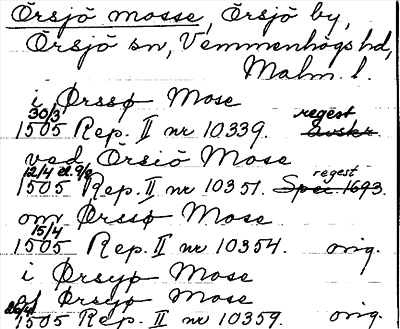 Örsjö mosse, Örsjö by,
Örsjö sn, Vemmenhögs hd,
Malm. l.
i Ørssø Mose
30/3 regest
1505 Rep. II nr 10339. Avskr.
ved Örsiö Mose
12/4 el. 9/8 regest
1505 Rep. II nr 10351. Spec. 1693.
om Ørssø Mose
15/4
1505 Rep. II nr 10354. orig.
i Ørsyø Mose
af Ørsyø Mose
26/4
1505 Rep. II nr 10359. orig.